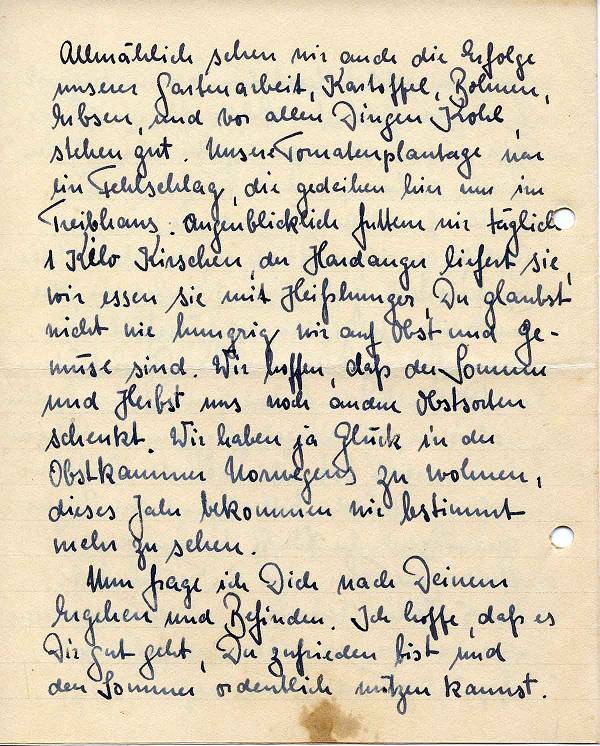 Allmählich sehen wir auch die Erfolge
unserer Gartenarbeit, Kartoffel, Bohnen,
Erbsen, und vor allen Dingen Kohl
stehen gut. Unsere Tomatenplantage war
ein Fehlschlag, die gedeihen hier nur im
Treibhaus. Augenblicklich futtern wir täglich
1 Kilo Kirschen, der Hardanger liefert sie,
wir essen sie mit Heißhunger, Du glaubst
nicht wie hungrig wir auf Obst und Ge-
müse sind. Wir hoffen, daß der Sommer
und Herbst uns noch andere Obstsorten
schenkt. Wir haben ja Glück in der
Obstkammer Norwegens zu wohnen,
dieses Jahr bekommen wir bestimmt
mehr zu sehen.
Nun frage ich Dich nach Deinem
Ergehen und Befinden. Ich hoffe, daß es
Dir gut geht, Du zufrieden bist und
den Sommer ordentlich nützen kannst.